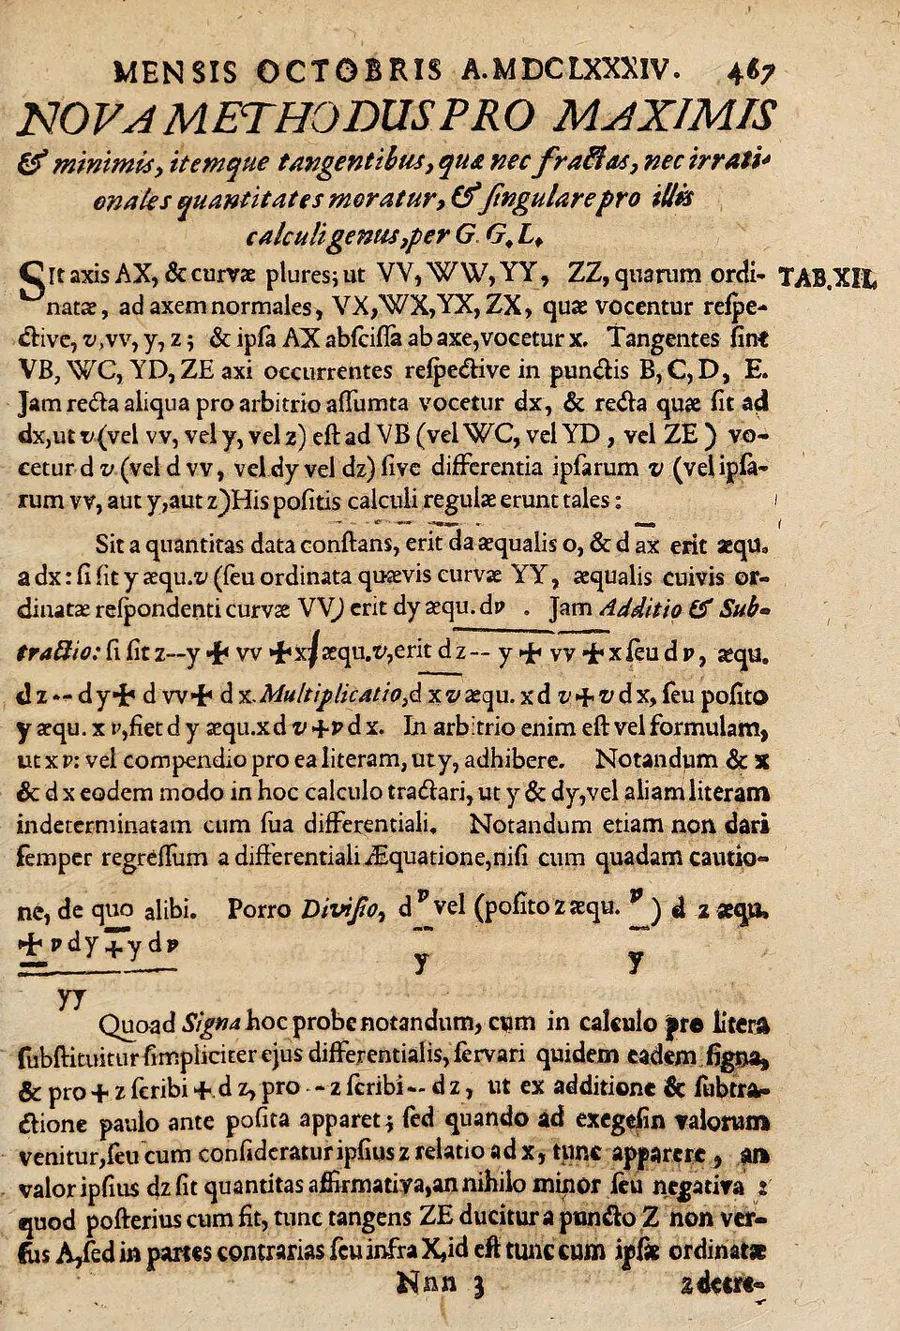 MENSIS OCTOBRIS A. MDCLXXXIV. 467
NOVA METHODUS PRO MAXIMIS
& minimis, itemque tangentibus, quæ nec fractas, nec irrati-
onales quantitates moratur, & ſingulare pro illis
calculi genus, per G. G. L.
SIt axis AX, & curvæ plures, ut VV, WW, YY, ZZ, quarum ordi- TAB. XII.
natæ, ad axem normales, VX, WX, YX, ZX, quæ vocentur reſpe-
ctive, v, vv, y, z; & ipſa AX abſciſſa ab axe, vocetur x. Tangentes ſint
VB, WC, YD, ZE axi occurrentes reſpective in punctis B, C, D, E.
Jam recta aliqua pro arbitrio aſſumta vocetur dx, & recta quæ ſit ad
dx, ut v (vel vv, vel y, vel z) eſt ad VB (vel WC, vel YD, vel ZE) vo-
cetur d v (vel d vv, vel dy vel dz) ſive differentia ipſarum v (vel ipſa-
rum vv, aut y, aut z) His poſitis calculi regulæ erunt tales:
Sit a quantitas data conſtans, erit da æqualis o, & d ax erit æqu.
a dx: ſi ſit y æqu. v (ſeu ordinata quævis curvæ YY, æqualis cuivis or-
dinatæ reſpondenti curvæ VV) erit dy æqu. dv. Jam Additio & Sub-
tractio: ſi ſit z -- y + vv + x æqu. v, erit d z -- y + vv + x ſeu d v, æqu.
d z -- d y + d vv + d x. Multiplicatio, d x v æqu. x d v + v d x, ſeu poſito
y æqu. x v, fiet d y æqu. x d v + v d x. In arbitrio enim eſt vel formulam,
ut x v: vel compendio pro ea literam, ut y, adhibere. Notandum & x
& d x eodem modo in hoc calculo tractari, ut y & dy, vel aliam literam
indeterminatam cum ſua differentiali. Notandum etiam non dari
ſemper regreſſum a differentiali Æquatione, niſi cum quadam cautio-
ne, de quo alibi. Porro Diviſio, d v vel (poſito z æqu. v ) d z æqu.
± v dy ∓ y d v y y
yy
Quoad Signa hoc probe notandum, cum in calculo pro litera
ſubſtituitur ſimpliciter ejus differentialis, ſervari quidem eadem ſigna,
& pro + z ſcribi + d z, pro -- z ſcribi -- d z, ut ex additione & ſubtra-
ctione paulo ante poſita apparet; ſed quando ad exegeſin valorum
venitur, ſeu cum conſideratur ipſius z relatio ad x, tunc apparere, an
valor ipſius dz ſit quantitas affirmativa, an nihilo minor ſeu negativa:
quod poſterius cum fit, tunc tangens ZE ducitur a puncto Z non ver-
ſus A, ſed in partes contrarias ſeu infra X, id eſt tunc cum ipſæ ordinatæ
Nnn 3 z decre-